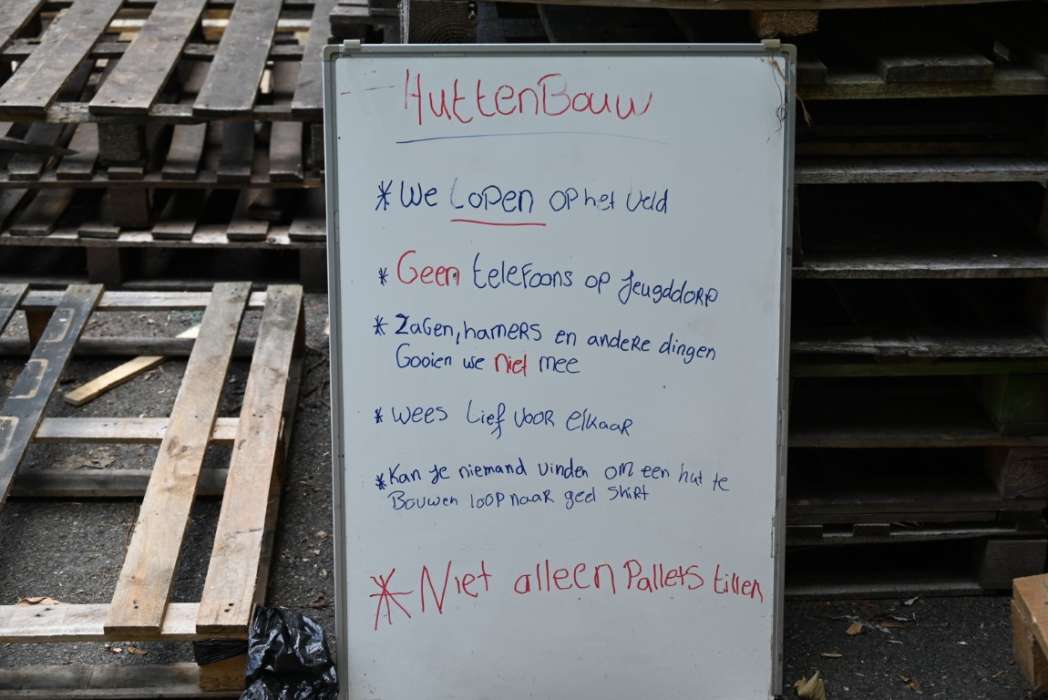 HuttenBouw
* We Lopen op het veld
* Geen telefoons op Jeugddorp
* Zagen, hamers en andere dingen
Gooien we niet mee
* Wees Lief voor elkaar
* Kan je niemand vinden om een hut te
Bouwen loop naar geel shirt
* Niet alleen Pallets tillen